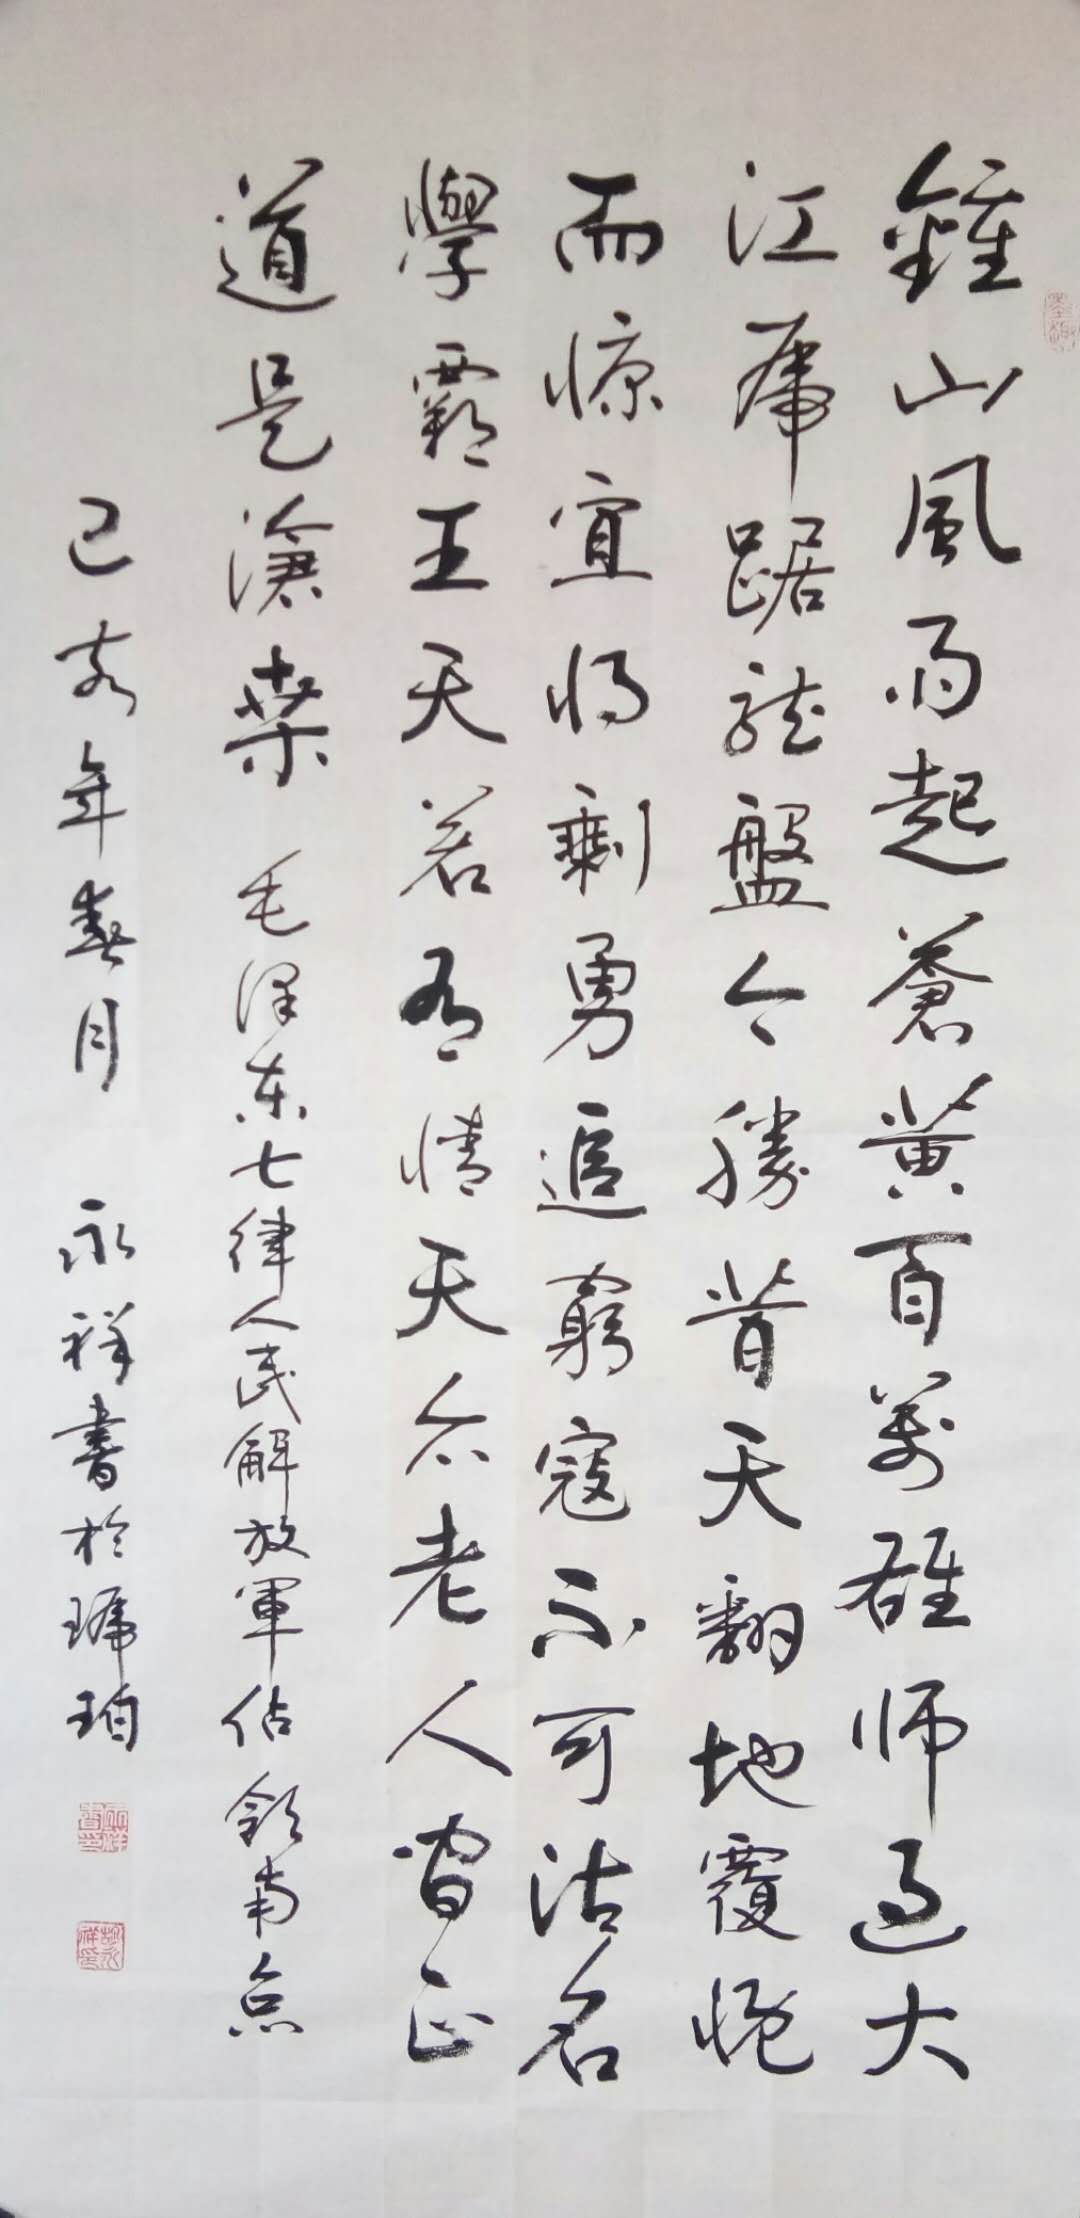 鍾山風雨起蒼黄百萬雄师过大
江虎踞龙盤今勝昔天翻地覆慨
而慷宜将剩勇追窮寇不可沽名
學霸王天若有情天亦老人间正
道是滄桒 毛泽东七律人民解放軍佔领南京
己亥年春月 永祥書於琥珀